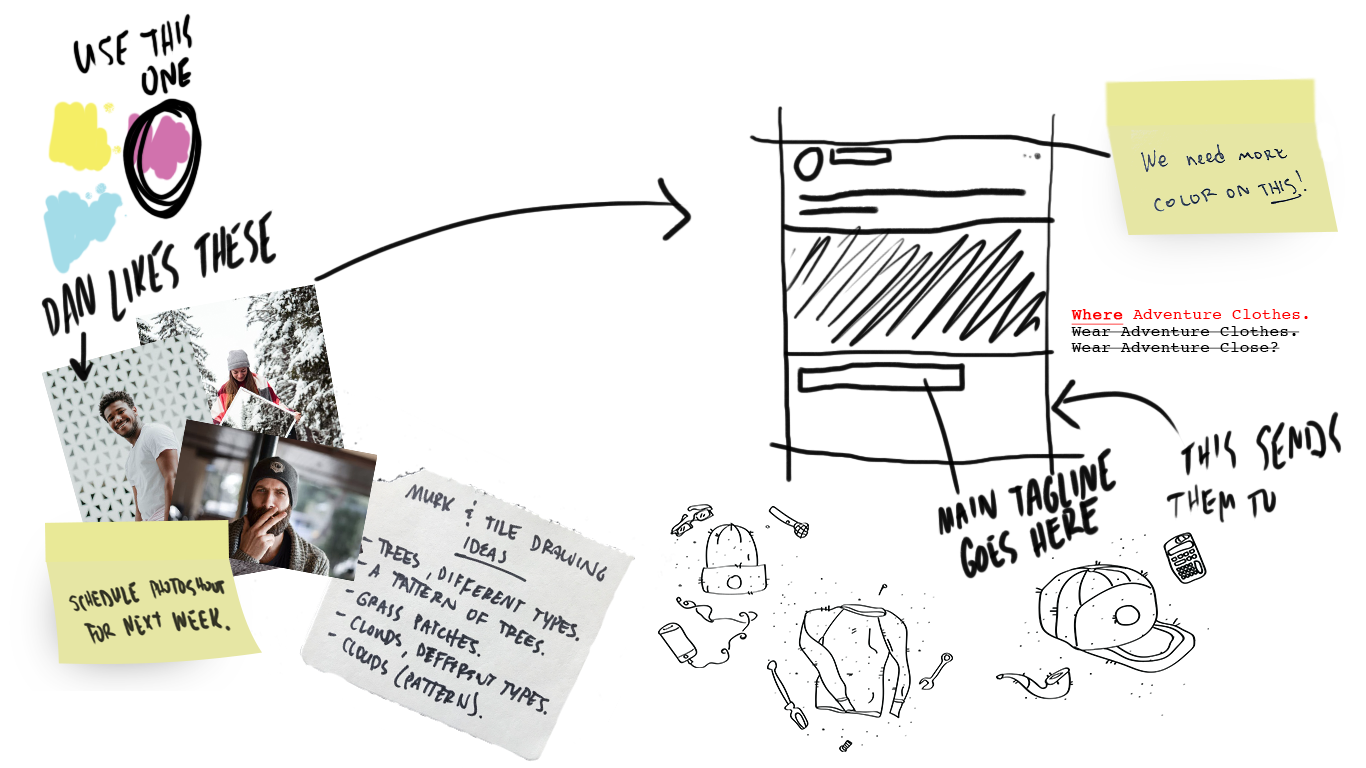 USE THIS
ONE
DAN LIKES THESE
SCHEDULE PHOTOSHOOT
FOR NEXT WEEK.
MURK & TILE DRAWING
IDEAS
- TREES, DIFFERENT TYPES.
- A PATTERN OF TREES.
- GRASS PATCHES.
- CLOUDS, DEFFERENT TYPES.
- CLOUDS (PATTERN).
We need more
COLOR ON THIS!
Where Adventure Clothes.
Wear Adventure Clothes.
Wear Adventure Close?
THIS SENDS
THEM TO
MAIN TAGLINE
GOES HERE